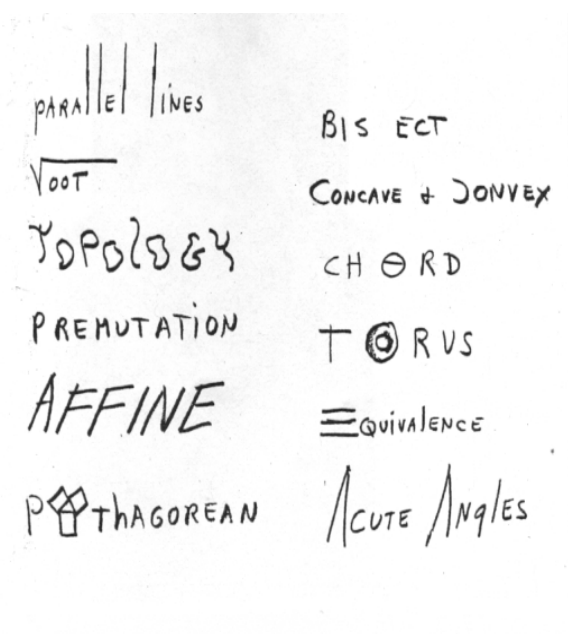 parallel lines
√OOT
TOPOLOGY
PREMUTATION
AFFINE
PYThAGOREAN
BIS ECT
CONCAVE & CONVEX
CH O RD
T O RUS
≡QUIVALENCE
ACUTE ANGLES